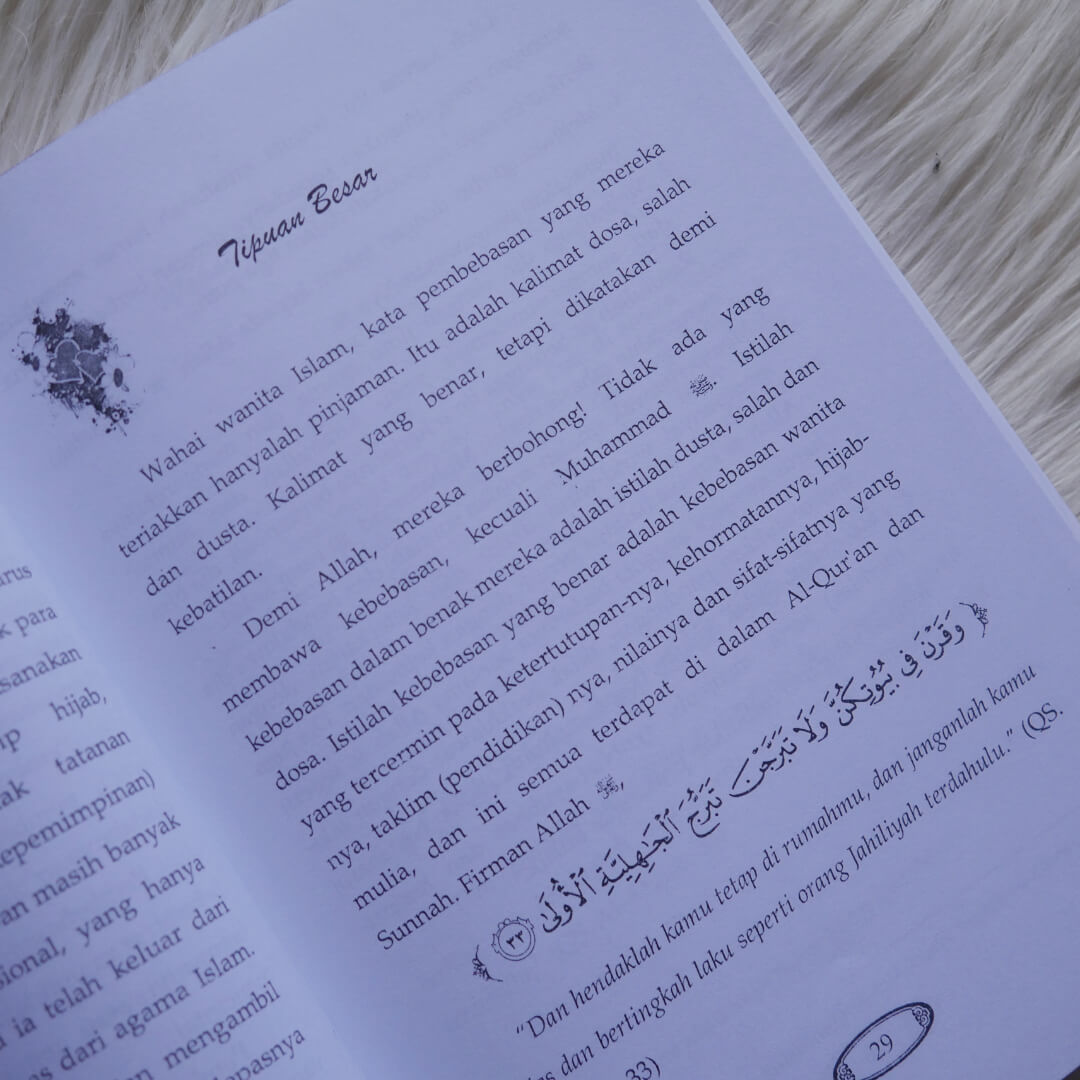 urus
k para
sanakan
hijab,
tatanan
kepemimpinan)
an masih banyak
sional, yang hanya
ia telah keluar dari
s dari agama Islam.
mengambil
lepasnya
Tipuan Besar
Wahai wanita Islam, kata pembebasan yang mereka
teriakkan hanyalah pinjaman. Itu adalah kalimat dosa, salah
dan dusta. Kalimat yang benar, tetapi dikatakan demi
kebatilan.
Demi Allah, mereka berbohong! Tidak ada yang
membawa kebebasan, kecuali Muhammad ﷺ. Istilah
kebebasan dalam benak mereka adalah istilah dusta, salah dan
dosa. Istilah kebebasan yang benar adalah kebebasan wanita
yang tercermin pada ketertutupan-nya, kehormatannya, hijab-
nya, taklim (pendidikan) nya, nilainya dan sifat-sifatnya yang
mulia, dan ini semua terdapat di dalam Al-Qur'an dan
Sunnah. Firman Allah ,
وَقَرْنَ فِي بُيُوتِكُنَّ وَلَا تَبَرَّجْنَ تَبَرُّجَ ٱلْجَـٰهِلِيَّةِ ٱلْأُولَىٰ ٣٣
"Dan hendaklah kamu tetap di rumahmu, dan janganlah kamu
dan bertingkah laku seperti orang Jahiliyah terdahulu." (QS.
33)
29